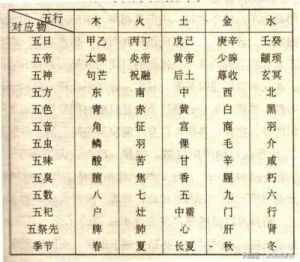 五行 木 火 土 金 水
对应物
五日 甲乙 丙丁 戊己 庚辛 壬癸
五帝 太皞 炎帝 黄帝 少皞 颛顼
五神 句芒 祝融 后土 蓐收 玄冥
五方 东 南 中 西 北
五色 青 赤 黄 白 黑
五音 角 征 宫 商 羽
五虫 鳞 羽 倮 毛 介
五味 酸 苦 甘 辛 咸
五臭 膻 焦 香 腥 朽
五数 八 七 五 九 六
五祀 户 灶 中霤 门 行
五祭先 脾 肺 心 肝 肾
季节 春 夏 长夏 秋 冬